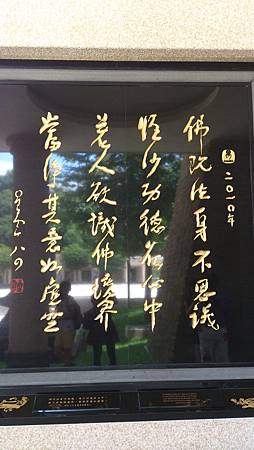 二〇一〇年
佛陀法身不思議
恆沙功德在心中
若人欲識佛境界
當淨其意如虛空
星雲 八四